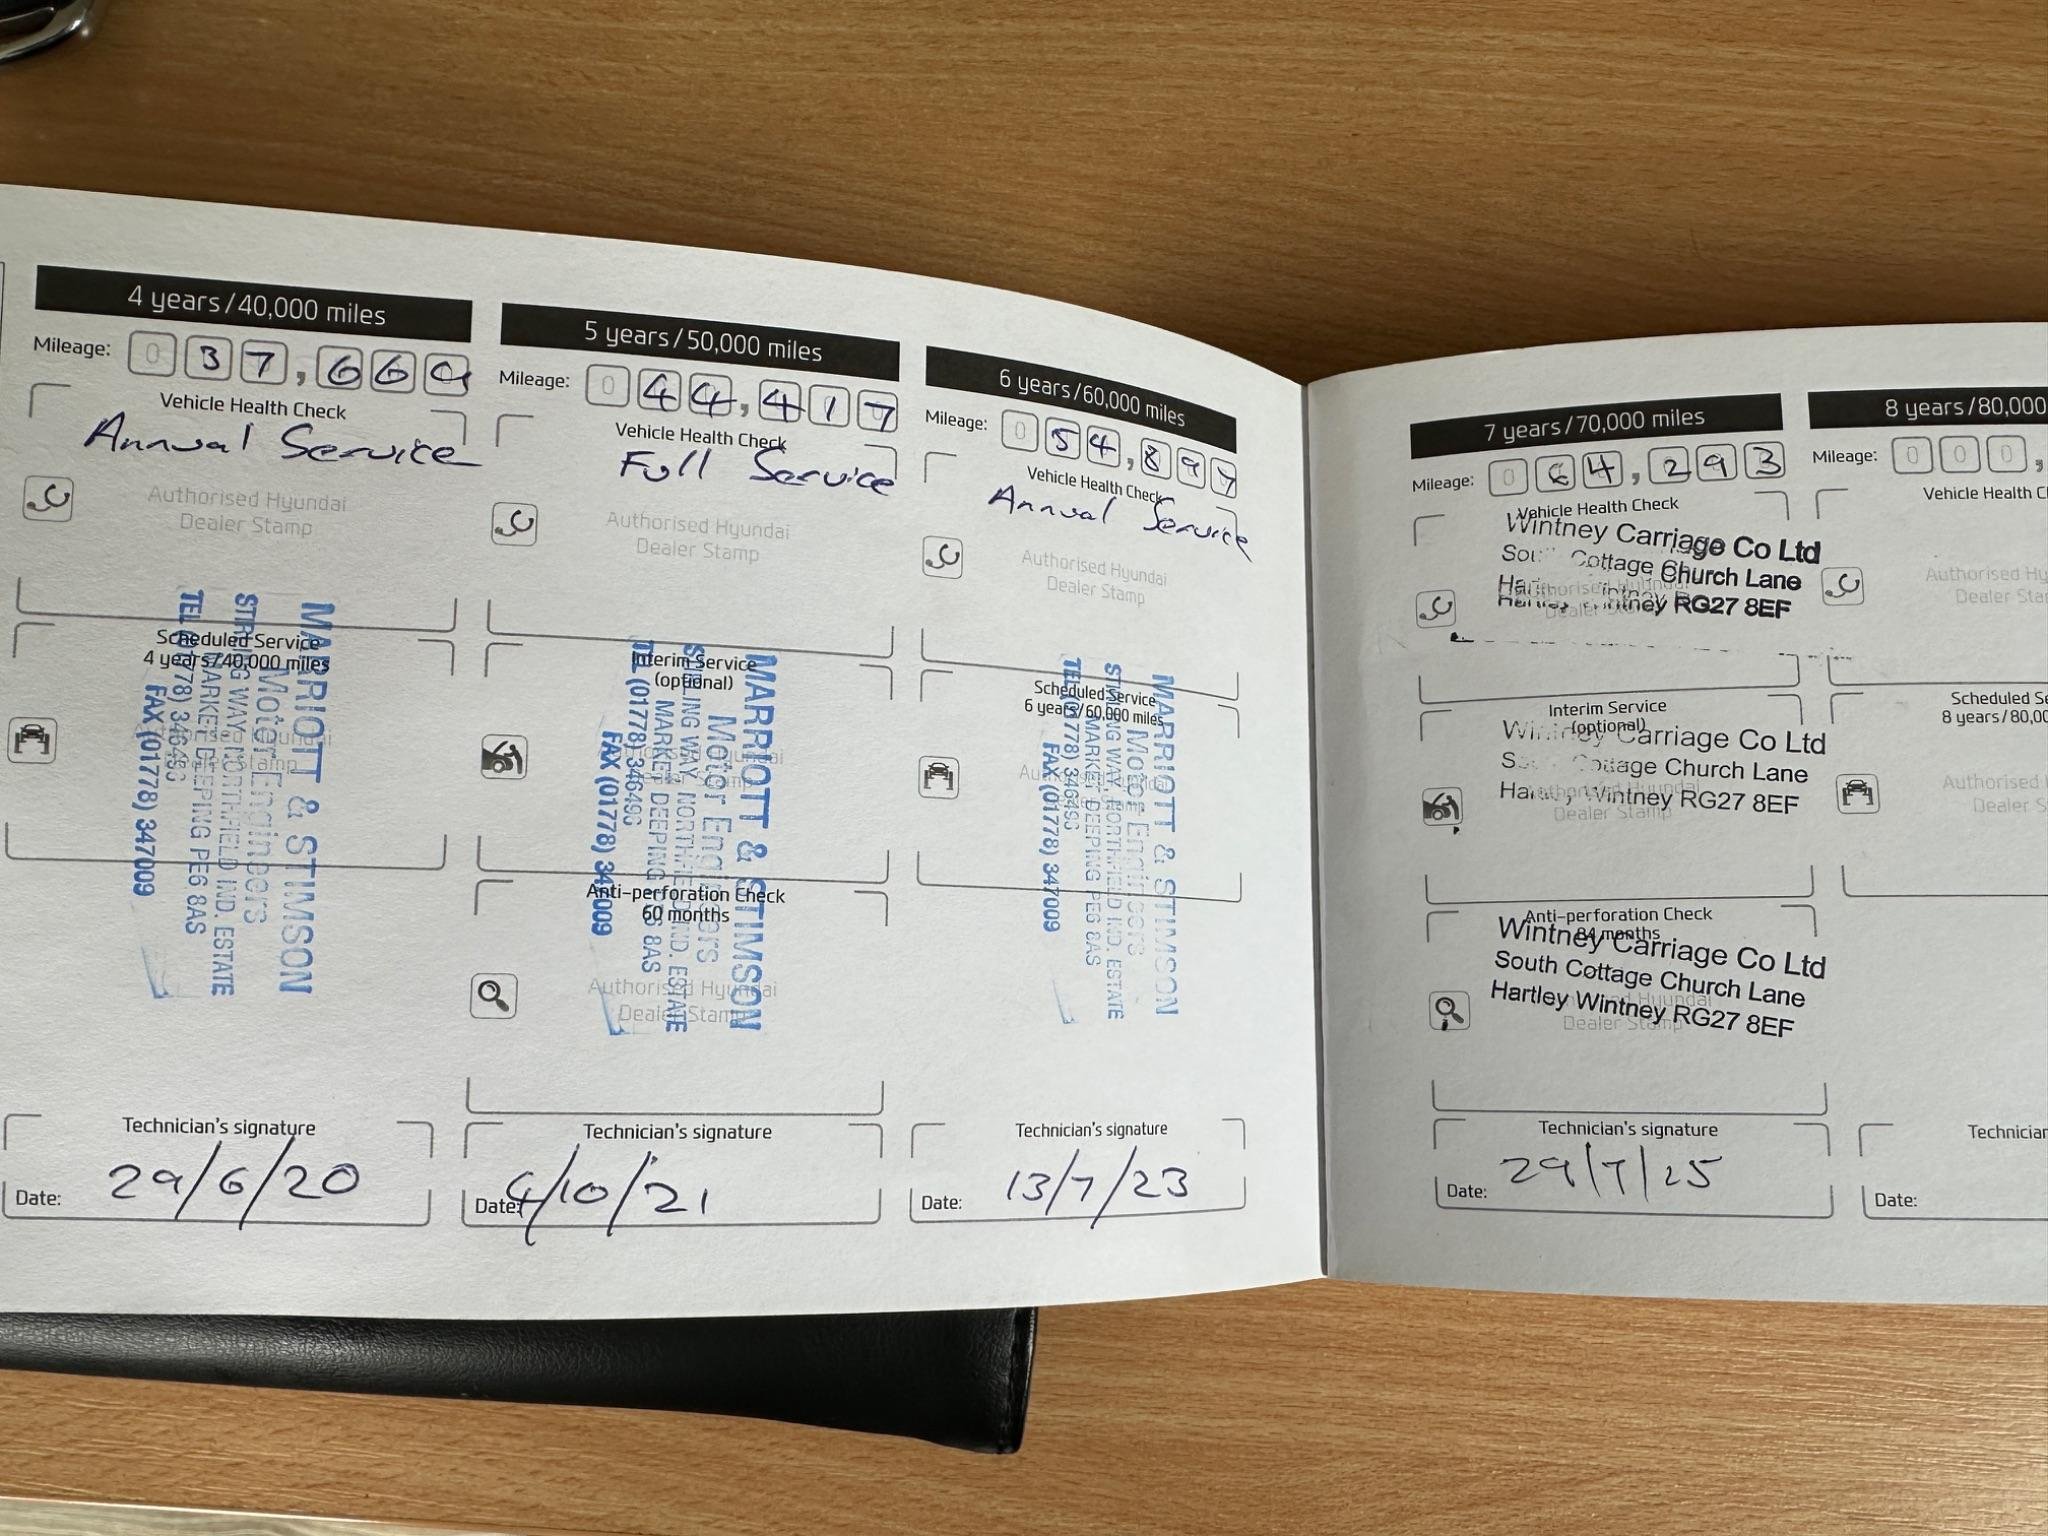 4 years/40,000 miles
Mileage: 0 3 7 , 6 6 9
Vehicle Health Check
Annual Service
Authorised Hyundai
Dealer Stamp
Scheduled Service
4 years/40,000 miles
MARRIOTT & STIMSON
Motor Engineers
STIRLING WAY, NORTHFIELD IND. ESTATE
MARKET DEEPING PE6 8AS
TEL (01778) 346493
FAX (01778) 347009
Technician's signature
Date: 29/6/20
5 years/50,000 miles
Mileage: 0 4 4 , 4 1 7
Vehicle Health Check
Full Service
Authorised Hyundai
Dealer Stamp
Interim Service
(optional)
MARRIOTT & STIMSON
Motor Engineers
STIRLING WAY, NORTHFIELD IND. ESTATE
MARKET DEEPING PE6 8AS
TEL (01778) 346493
FAX (01778) 347009
Anti-perforation Check
60 months
Authorised Hyundai
Dealer Stamp
Technician's signature
Date: 4/10/21
6 years/60,000 miles
Mileage: 0 5 4 , 8 9 7
Vehicle Health Check
Annual Service
Authorised Hyundai
Dealer Stamp
Scheduled Service
6 years/60,000 miles
MARRIOTT & STIMSON
Motor Engineers
STIRLING WAY, NORTHFIELD IND. ESTATE
MARKET DEEPING PE6 8AS
TEL (01778) 346493
FAX (01778) 347009
Technician's signature
Date: 13/7/23
7 years/70,000 miles
Mileage: 0 6 4 , 2 9 3
Vehicle Health Check
Wintney Carriage Co Ltd
Cottage Church Lane
Wintney RG27 8EF
Interim Service
(optional)
Wintney Carriage Co Ltd
Cottage Church Lane
Hartley Wintney RG27 8EF
Authorised Hyundai
Dealer Stamp
Anti-perforation Check
84 months
Wintney Carriage Co Ltd
South Cottage Church Lane
Hartley Wintney RG27 8EF
Dealer Stamp
Technician's signature
Date: 29/7/25
8 years/80,000
Mileage: 0 0 0 ,
Vehicle Health C
Authorised Hy
Dealer Sta
Scheduled Se
8 years/80,00
Authorised H
Dealer S
Technician
Date: